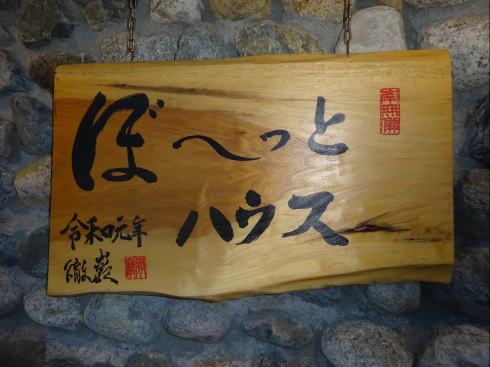 ぼ〜っと
ハウス
令和元年